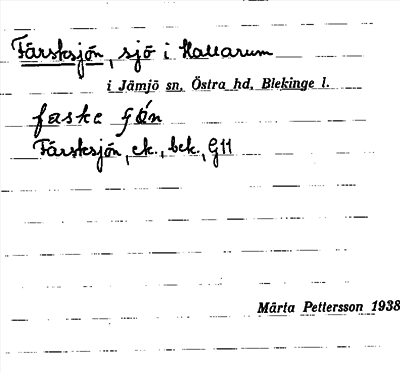 Färsksjön, sjö i Hallarum
i Jämjö sn, Östra hd, Blekinge l.
faske fjǿn
Färsksjön, ek., bek., G11
Märta Pettersson 1938